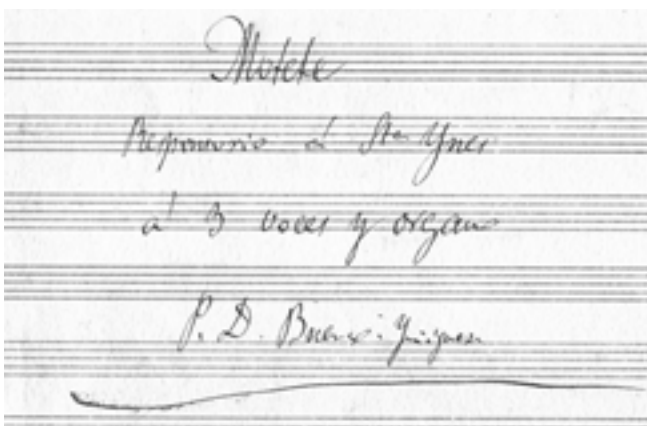 Motete
Responsorio á Sta Ynes
á 3 voces y organo
P. D. Bueno